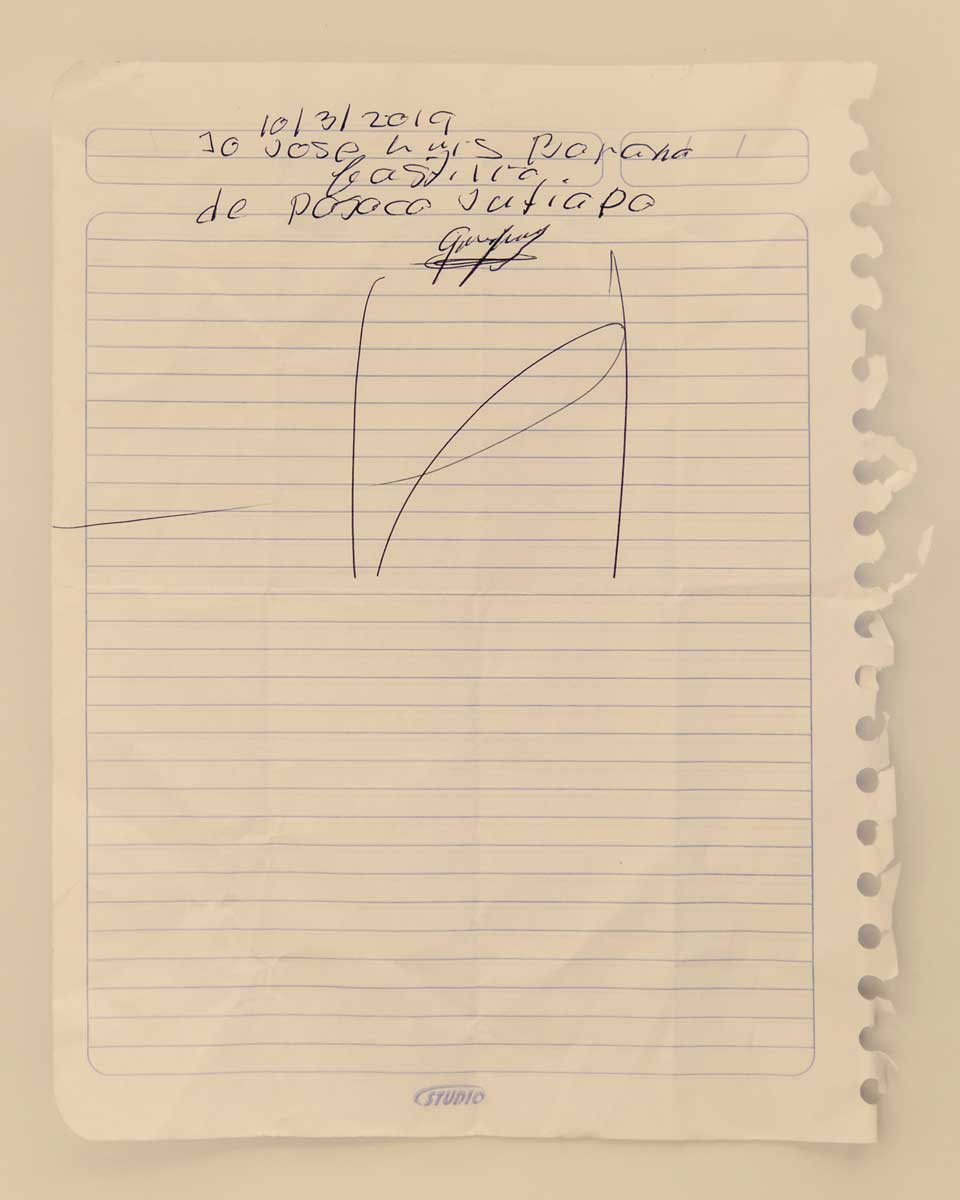 10/3/2019
Jo Jose Luis Barana
Castillo
de pasaco Jutiapa
STUDIO